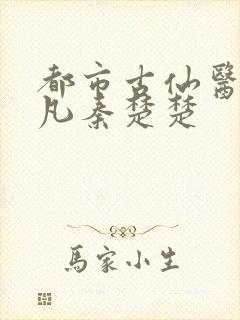 都市古仙醫
凡秦楚楚
馬家小生